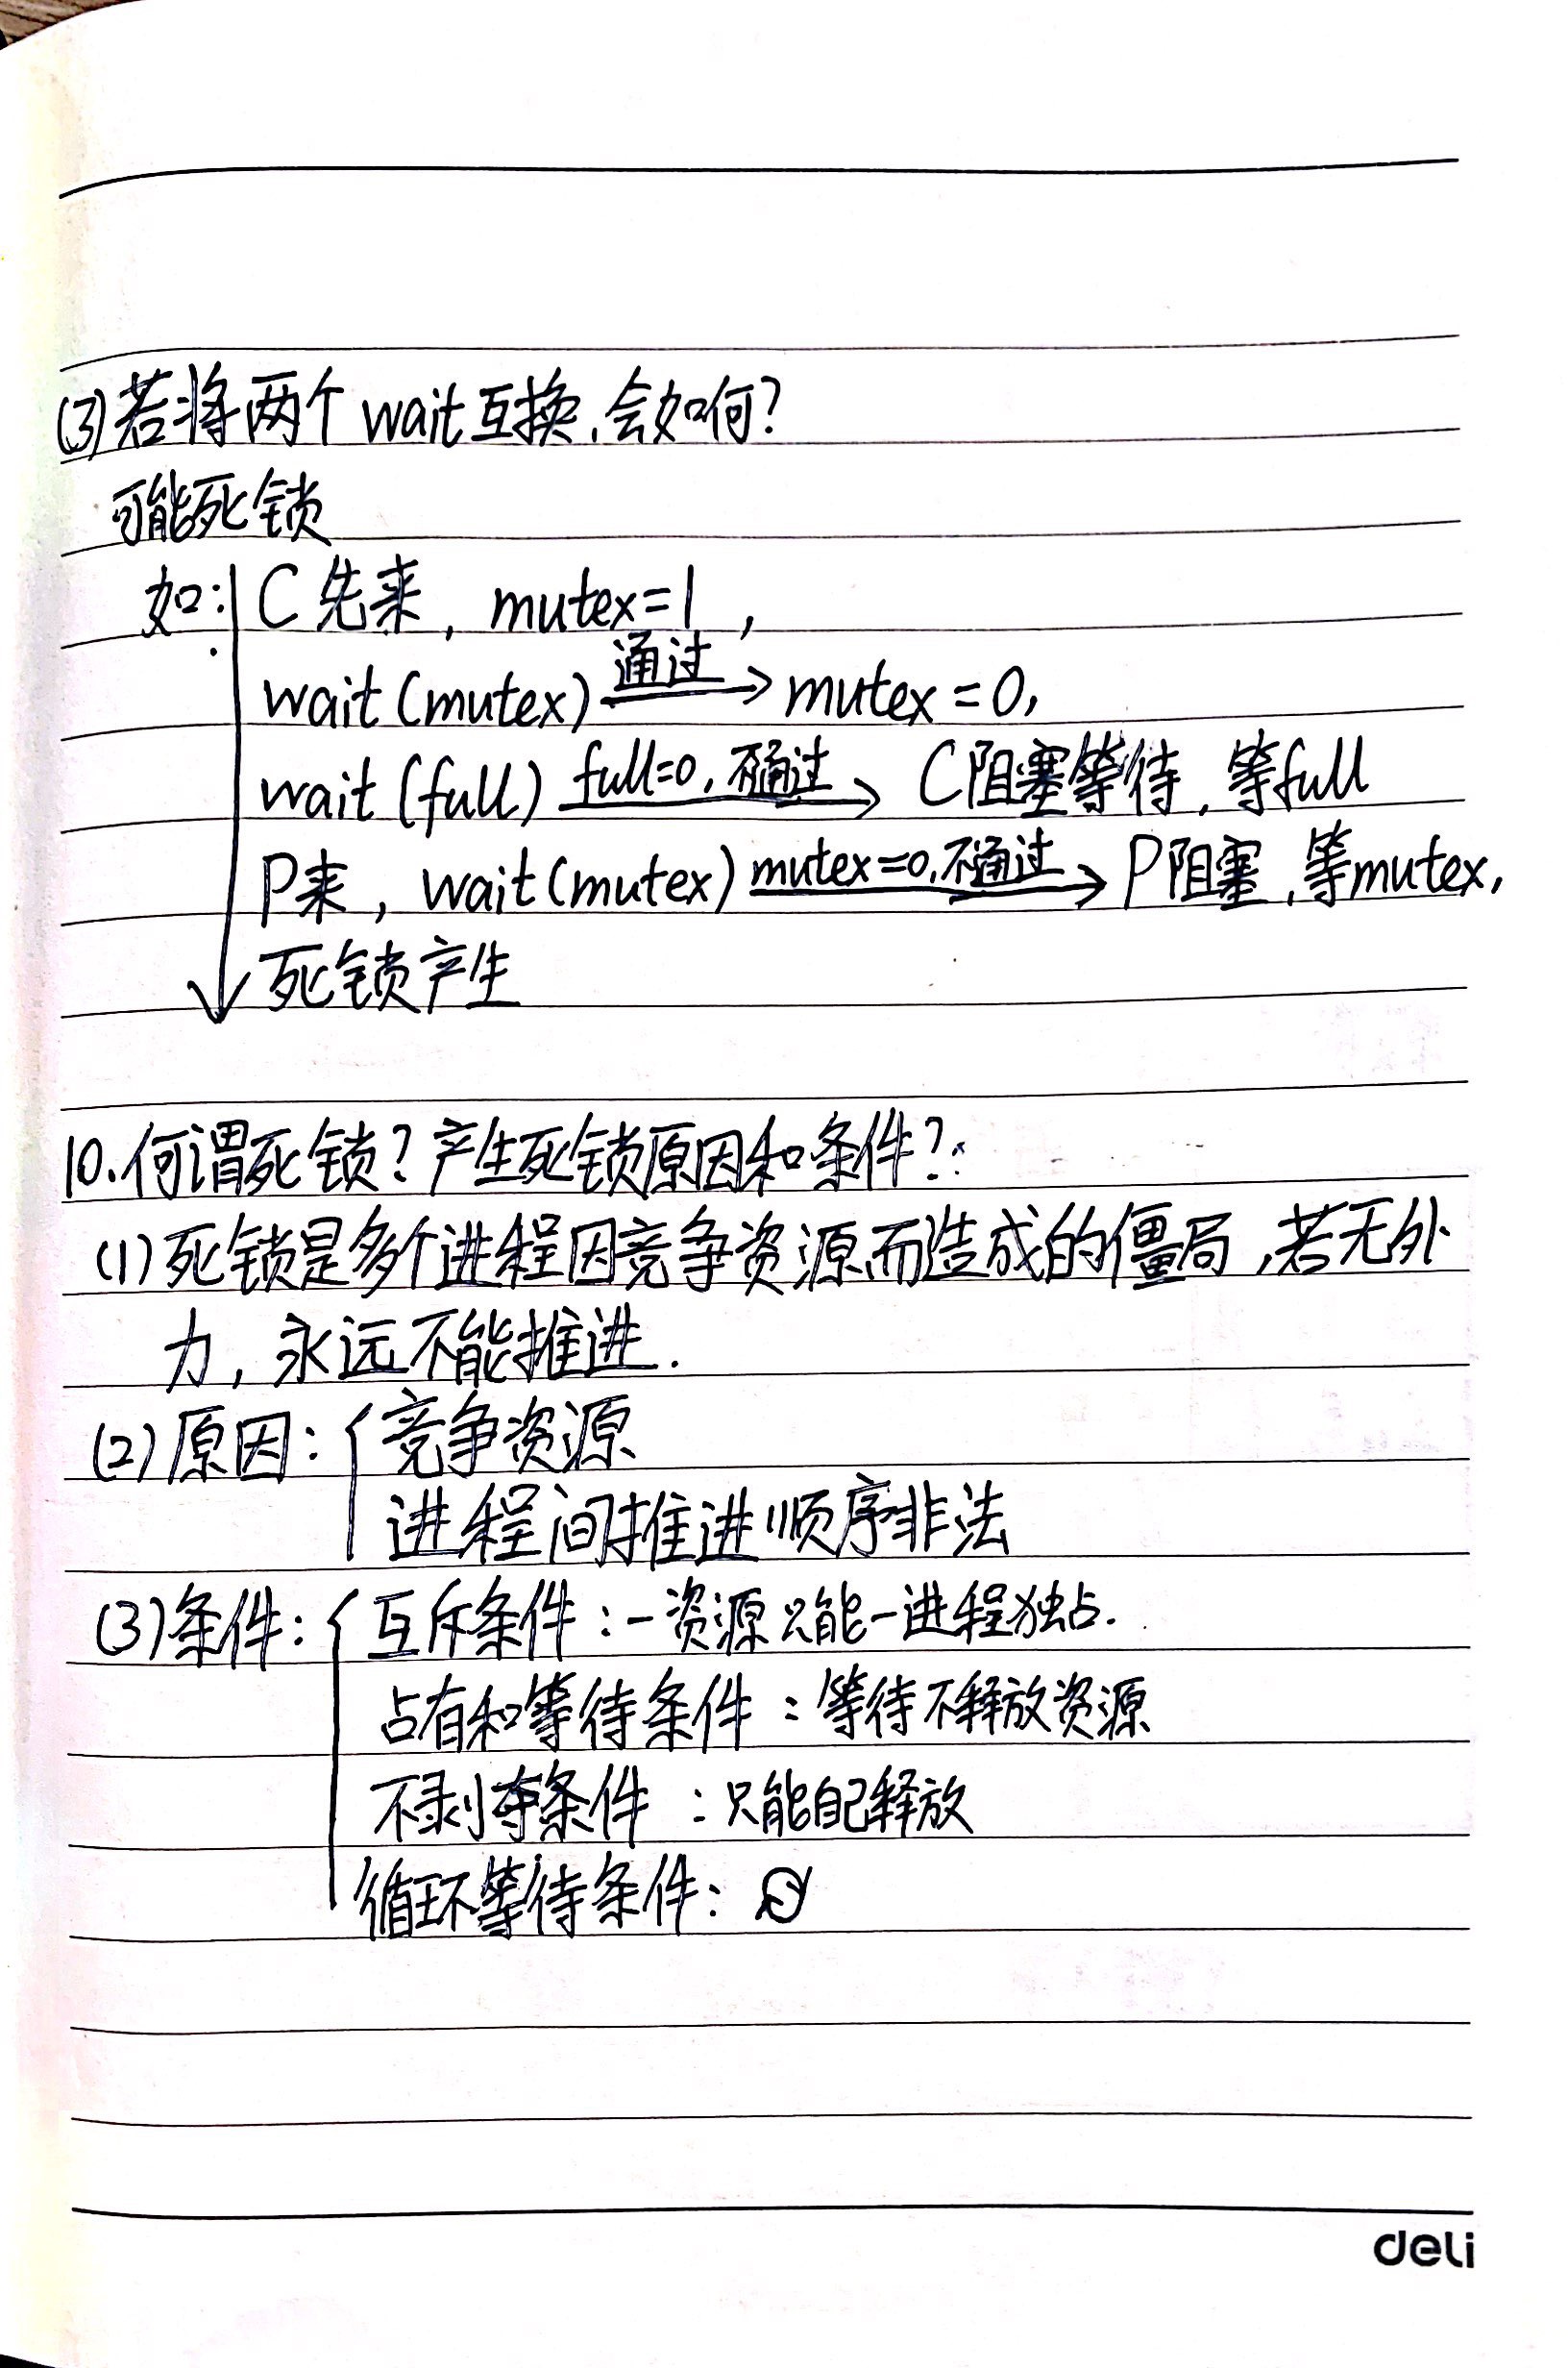 (3)若将两个wait互换,会如何?
可能死锁
如: C先来, mutex=1,
wait(mutex) 通过→ mutex=0,
wait(full) full=0,不通过→ C阻塞等待,等full
P来, wait(mutex) mutex=0,不通过→ P阻塞,等mutex,
死锁产生
10.何谓死锁?产生死锁原因和条件?:
(1)死锁是多个进程因竞争资源而造成的僵局,若无外
力,永远不能推进.
(2)原因:{竞争资源
进程间推进顺序非法
(3)条件:{互斥条件:一资源只能一进程独占.
占有和等待条件:等待不释放资源
不剥夺条件:只能自己释放
循环等待条件:
deli